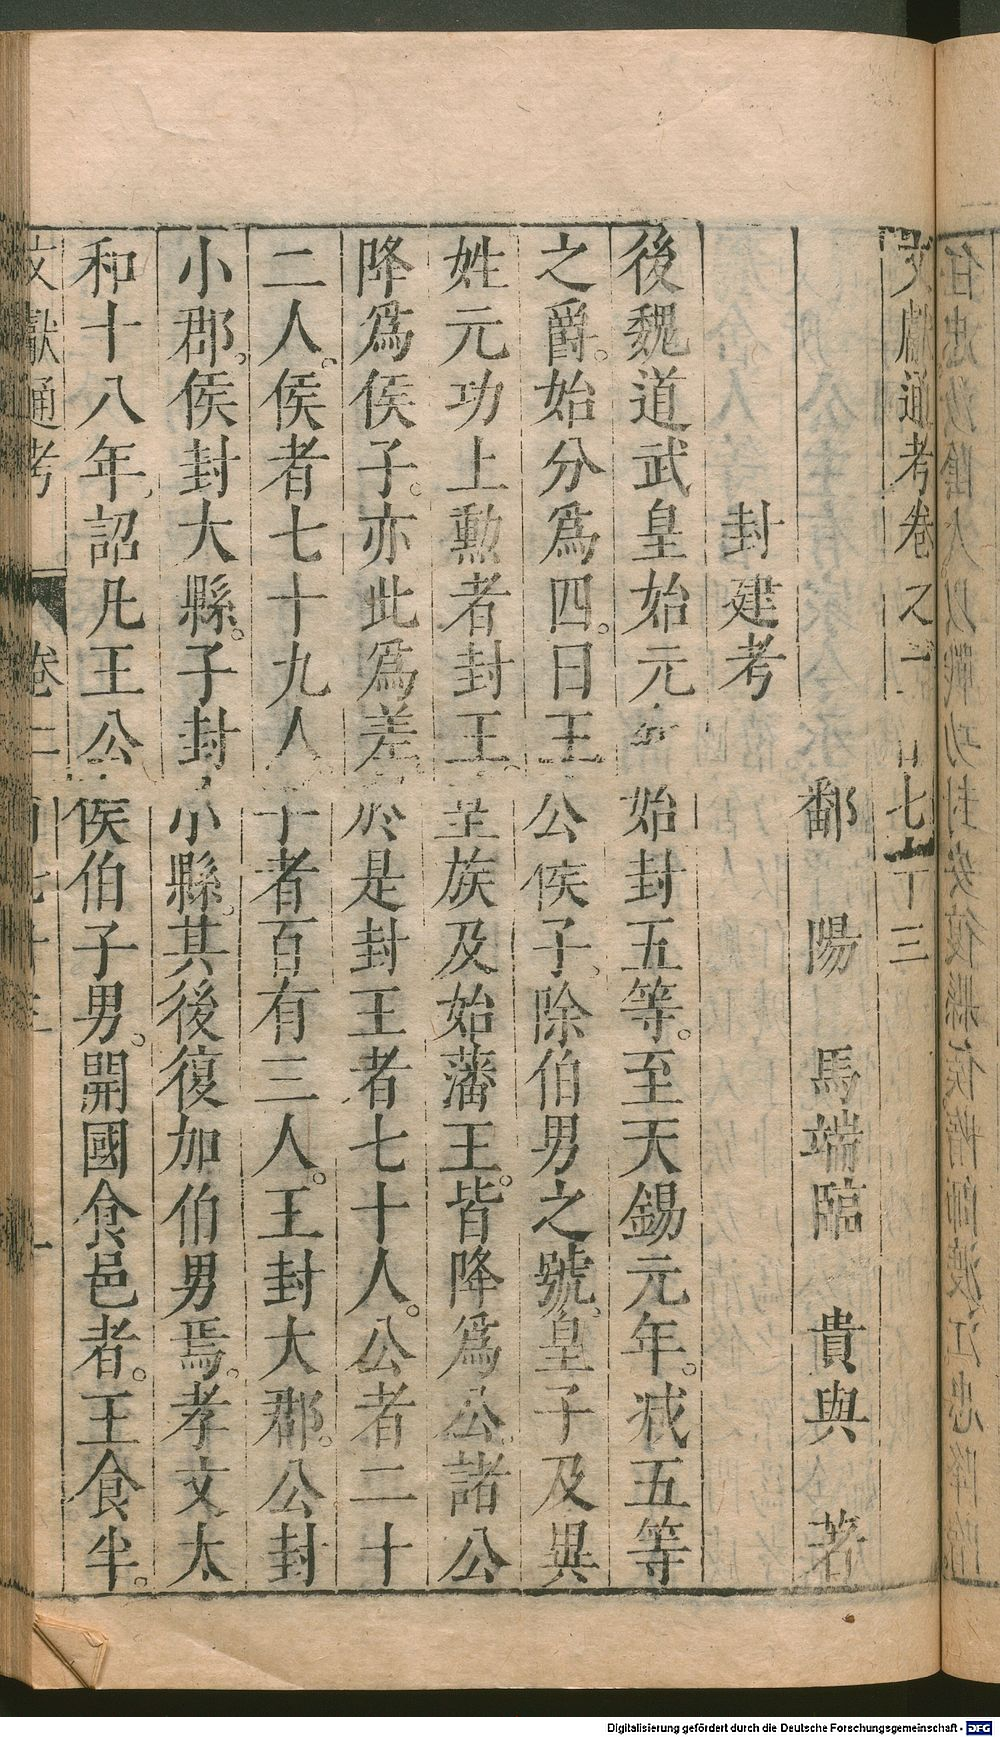 文獻通考卷之二百七十三
鄱陽馬端臨貴與著
封建考
後魏道武皇始元年始封五等。至天錫元年。减五等
之爵。始分爲四。曰王公侯子。除伯男之號。皇子及異
姓元功上勲者封王。皇族及始藩王。皆降爲公。諸公
降爲侯子。亦此爲差。於是封王者七十人。公者二十
二人。侯者七十九人。子者百有三人。王封大郡。公封
小郡。侯封大縣。子封小縣。其後復加伯男焉。孝文太
和十八年。詔凡王公侯伯子男。開國食邑者。王食半。
文獻通考 卷二百七十三 一
Digitalisierung gefördert durch die Deutsche Forschungsgemeinschaft - DFG